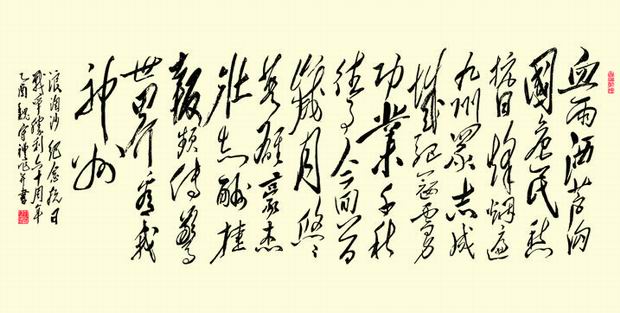 血雨洒芦沟
國危民愁
抗日烽烟遍
九州眾志成
城驱寇虏
功業千秋
往事今回首
歲月悠悠
英雄豪杰
壮志酬捷
報頻传驚
世界看我
神州
浪淘沙 纪念抗日
战争胜利六十周年
乙酉魏 作并書